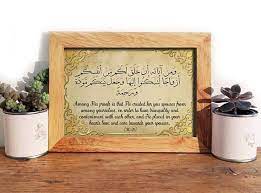 ومن آياته أن خلق لكم من أنفسكم
أزواجا لتسكنوا إليها وجعل بينكم مودة
ورحمة
Among His proofs is that He created for you spouses from
among yourselves, in order to have tranquility and
contentment with each other, and He placed in your
hearts love and care towards your spouses.
(30:21)